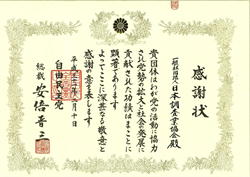 感謝状
一般社団法人日本調査業協会殿
貴団体はわが党の活動に協力
され党勢の拡大と社会発展に
貢献された功績はまことに
顕著であります
よってここに深甚なる敬意と
感謝の意を表します
平成三十一年二月十日
自由民主党
総裁 安倍晋三